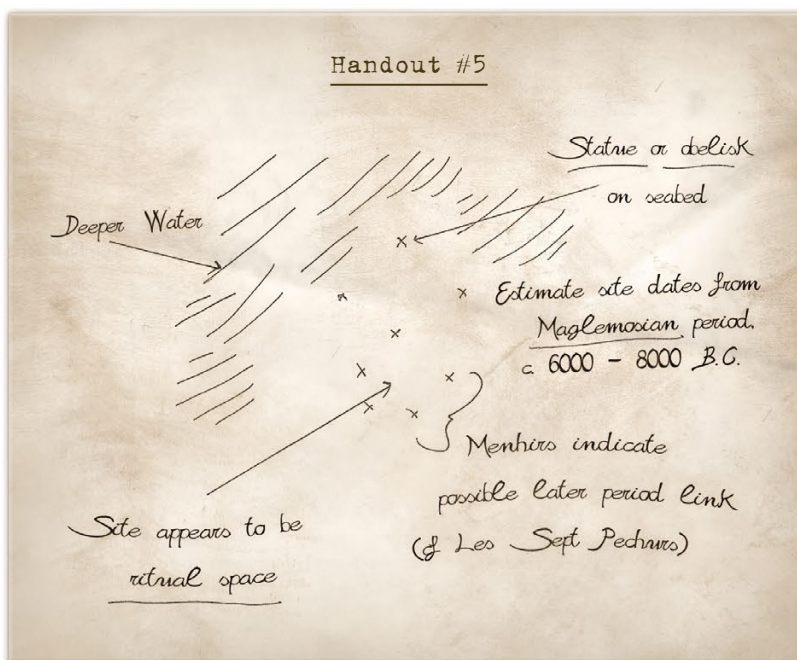 Handout #5
Statue or obelisk
on seabed
Deeper Water
Estimate site dates from
Maglemosian period.
c. 6000 - 8000 B.C.
Menhirs indicate
possible later period link
(cf Les Sept Pechurs)
Site appears to be
ritual space